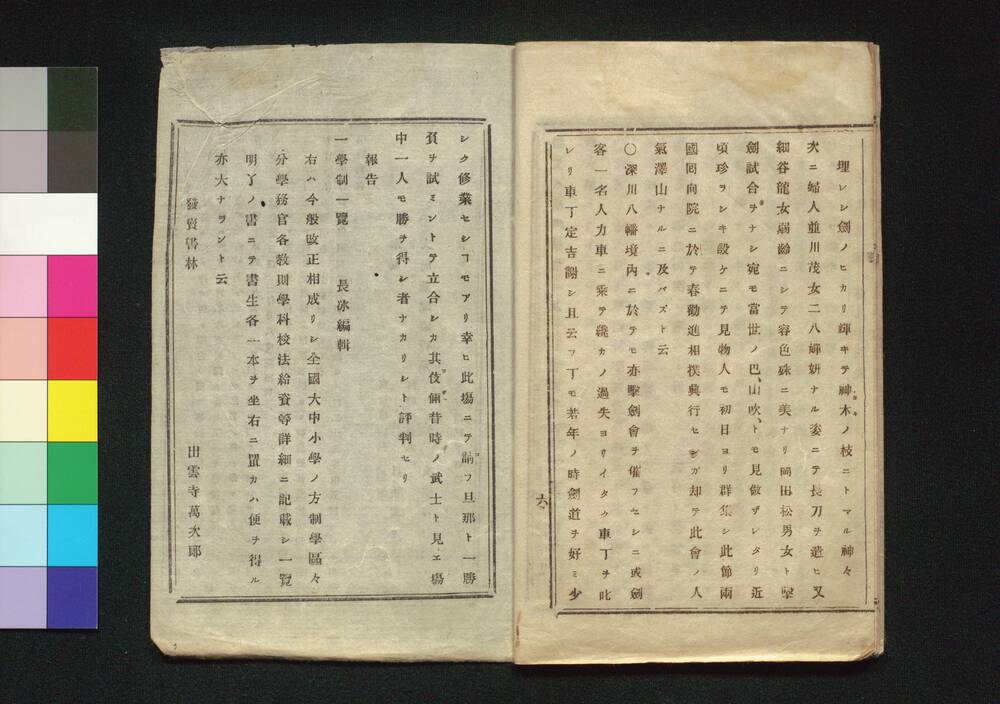 埋レシ劍ノヒカリ輝キテ神木ノ枝ニトマル神々
次ニ婦人並川茂女二八嬋妍ナル姿ニテ長刀ヲ遣ヒ又
細谷龍女弱齡ニシテ容色殊ニ美ナリ岡田松男女ト擊
劍試合ヲナシ宛モ當世ノ巴、山吹、トモ見做ザレタリ近
頃珍ヲシキ設ケニテ見物人モ初日ヨリ群集シ此節兩
國回向院ニ於テ春勸進相撲興行セシガ却テ此會ノ人
氣澤山ナルニ及バズト云
〇深川八幡境內ニ於テモ亦擊劍會ヲ催フセシニ或劍
客一名人力車ニ乘テ纔カノ過失ヨリイタク車丁ヲ叱
レリ車丁定吉謝シ且云フ丁モ若年ノ時劍道ヲ好ミ少
六
シク修業セシコモアリ幸ヒ此場ニテ請フ旦那ト一勝
負ヲ試ミントテ立合シカ其伎倆昔時ノ武士ト見エ場
中一人モ勝ヲ得シ者ナカリシト評判セリ
報告
一學制一覽 長冰編輯
右ハ今般改正相成リシ全國大中小學ノ方制學區々
分學務官各敎則學科校法給資等詳細ニ記載シ一覽
明了ノ書ニテ書生各一本ヲ坐右ニ置カハ便ヲ得ル
亦大ナラント云
發賣書林 出雲寺萬次郎